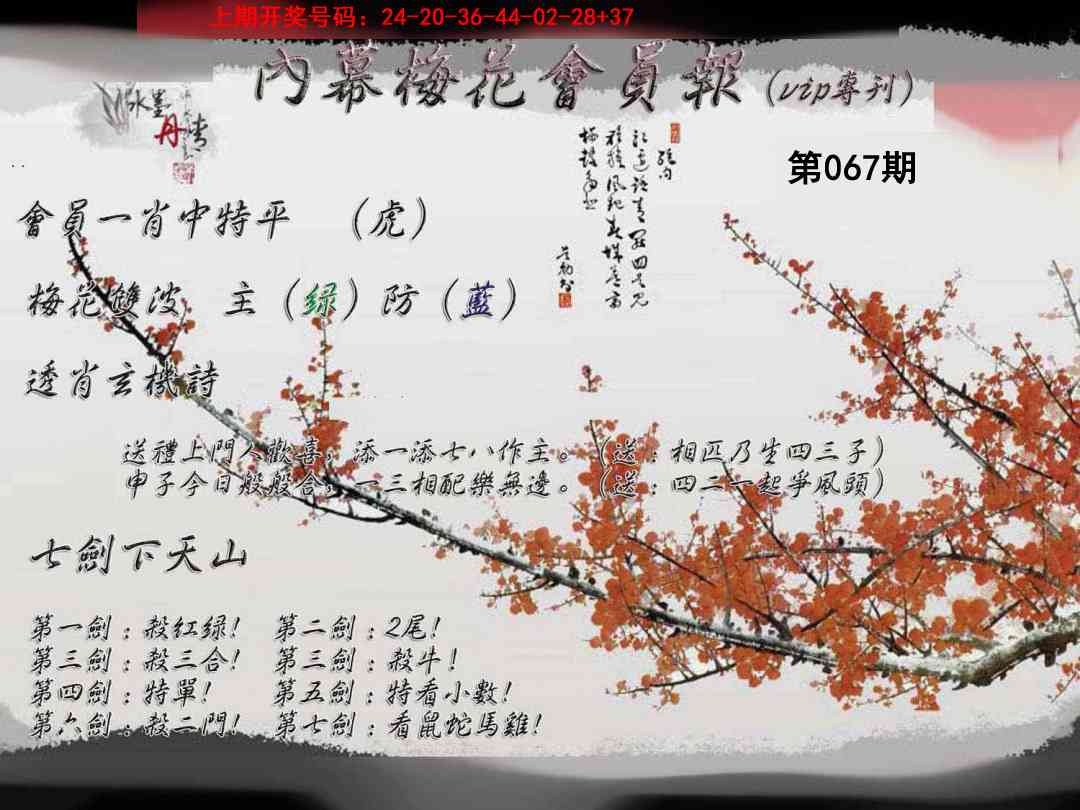 上期开奖号码：24-20-36-44-02-28+37
內幕梅花會員報（vip專刊）
水墨丹青
第067期
會員一肖中特平 （虎）
梅花雙波 主（绿）防（藍）
透肖玄機詩
送禮上門人歡喜，添一添七八作主。（送：相匹乃生四三子）
申子今日般般合，一三相配樂無邊。（送：四二一起爭風頭）
七劍下天山
第一劍：殺红绿！ 第二劍：2尾！
第三劍：殺三合！ 第三劍：殺牛！
第四劍：特單！ 第五劍：特看小數！
第六劍：殺二門！ 第七劍：看鼠蛇馬雞！